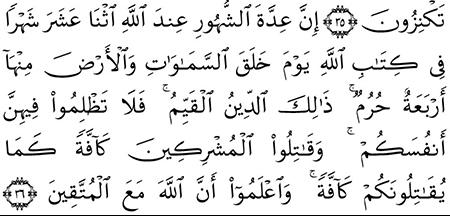 تَكْنِزُونَ ﴿٣٥﴾ إِنَّ عِدَّةَ ٱلشُّهُورِ عِندَ ٱللَّهِ ٱثْنَا عَشَرَ شَهْرًا
فِى كِتَٰبِ ٱللَّهِ يَوْمَ خَلَقَ ٱلسَّمَٰوَٰتِ وَٱلْأَرْضَ مِنْهَآ
أَرْبَعَةٌ حُرُمٌ ۚ ذَٰلِكَ ٱلدِّينُ ٱلْقَيِّمُ ۚ فَلَا تَظْلِمُوا۟ فِيهِنَّ
أَنفُسَكُمْ ۚ وَقَٰتِلُوا۟ ٱلْمُشْرِكِينَ كَآفَّةً كَمَا
يُقَٰتِلُونَكُمْ كَآفَّةً ۚ وَٱعْلَمُوٓا۟ أَنَّ ٱللَّهَ مَعَ ٱلْمُتَّقِينَ ﴿٣٦﴾